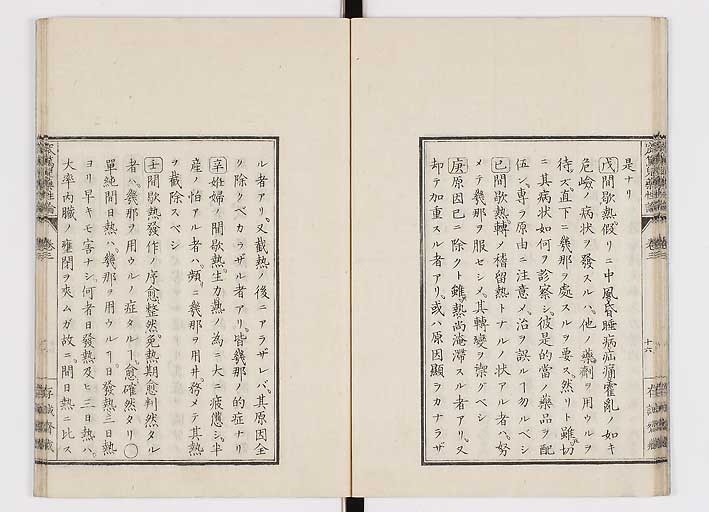 是ナリ
戊間歇熱假リニ中風昏睡病疝痛霍亂ノ如キ
危險ノ病状ヲ發スルハ他ノ藥劑ヲ用ウルヲ
待ズ直下ニ幾那ヲ處スルヲ要ス然リト雖切
ニ其病状如何ヲ診察シ彼是的當ノ藥品ヲ配
伍シ專ラ原由ニ注意メ治ヲ誤ルヿ勿ルベシ
己間歇熱轉メ稽留熱トナルノ状アル者ハ努
メテ幾那ヲ服セシメ其轉變ヲ禦グベシ
庚原因已ニ除クト雖熱尚淹滯スル者アリ又
却テ加重スル者アリ或ハ原因顯ラカナラザ
十六
ル者アリ又截熱ノ後ニアラザレバ其原因全
ク除クベカラザル者アリ皆幾那ノ的症ナリ
辛妊婦ノ間歇熱生力熱ノ為ニ大ニ疲憊シ半
産ノ怕アル者ハ頻ニ幾那ヲ用井務メテ其熱
ヲ截除スベシ
壬間歇熱發作ノ序愈整然免熱期愈判然タル
者ハ幾那ヲ用ウルノ症タルヿ愈確然タリ○
單純間日熱ハ幾那ヲ用ウルヿ日發熱三日熱
ヨリ早キモ害ナシ何者日發熱及ヒ三日熱ハ
大率内臓ノ壅閉ヲ夾ムガ故ニ間日熱ニ比ス